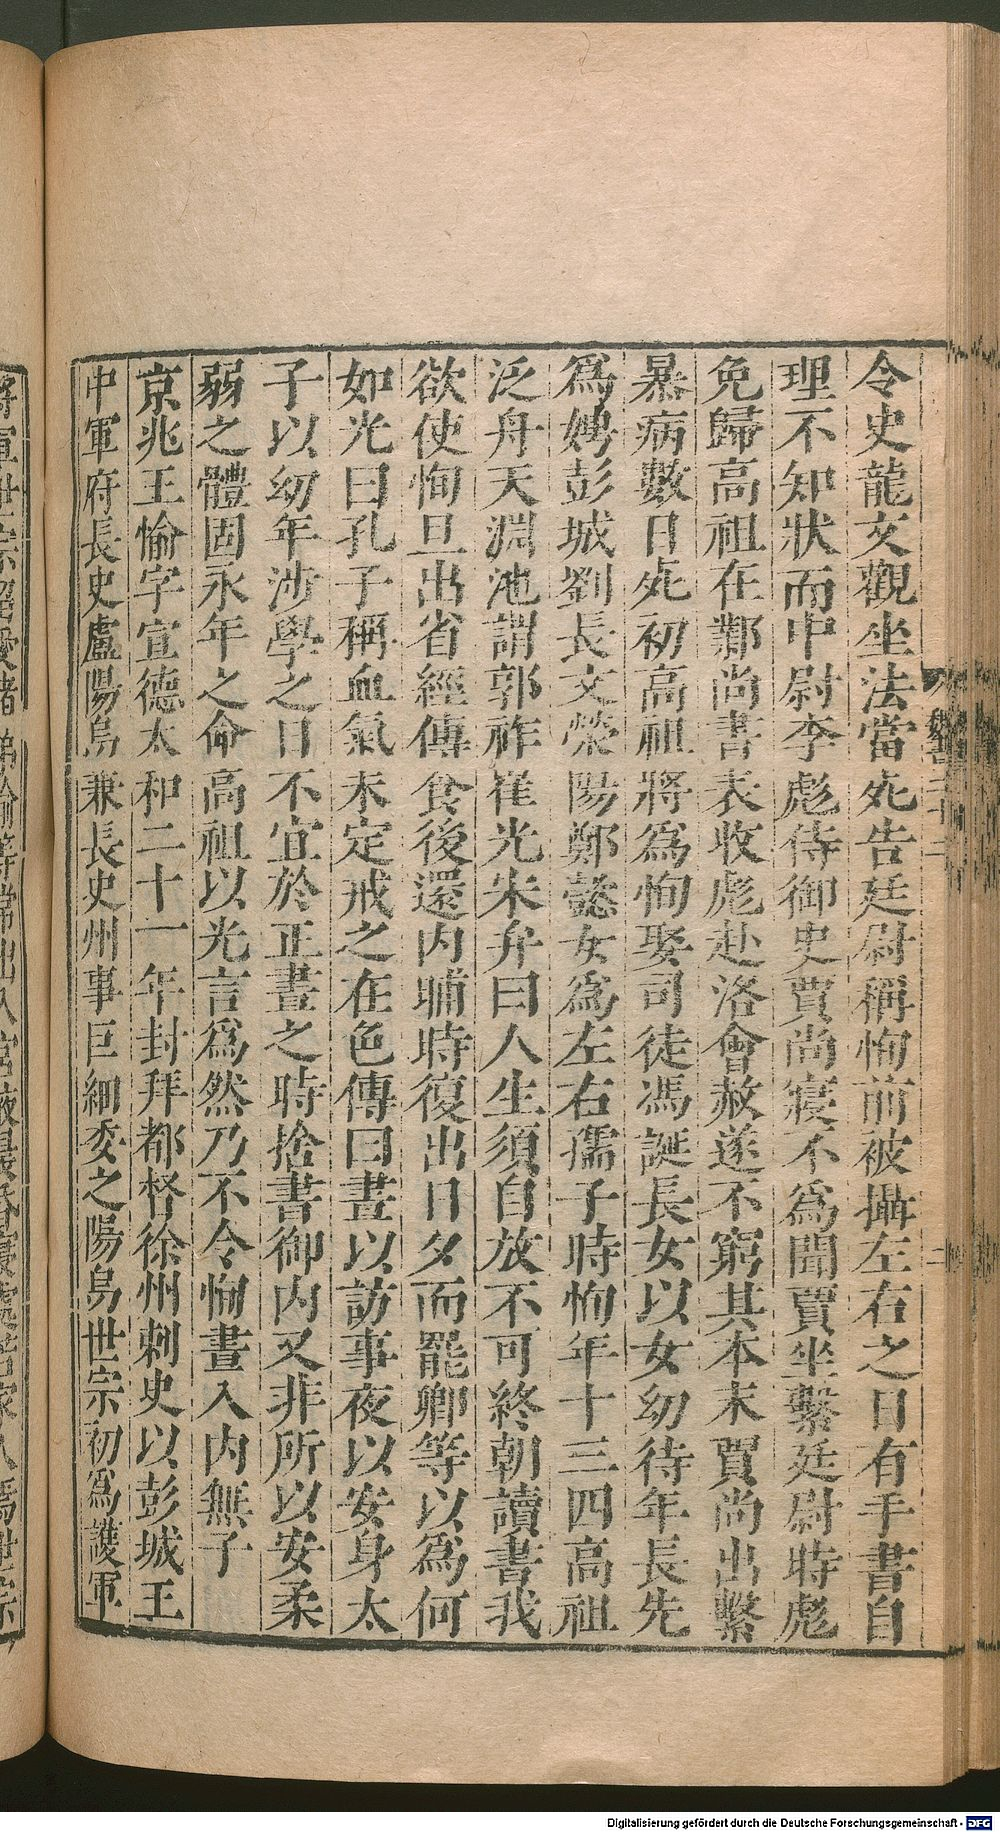 令史龍文觀坐法當死告廷尉稱恂前被攝左右之日有手書自
理不知狀而中尉李彪侍御史賈尚寢不爲聞賈坐繫廷尉時彪
免歸高祖在鄴尚書表收彪赴洛會赦遂不窮其本末賈尚出繫
暴病數日死初高祖將爲恂娶司徒馮誕長女以女幼待年長先
爲娉彭城劉長文滎陽鄭懿女爲左右孺子時恂年十三四高祖
泛舟天淵池謂郭祚崔光宋弁曰人生須自放不可終朝讀書我
欲使恂旦出省經傳食後還内晡時復出日夕而罷卿等以爲何
如光曰孔子稱血氣未定戒之在色傳曰晝以訪事夜以安身太
子以幼年涉學之日不宜於正晝之時捨書御内又非所以安柔
弱之體固永年之命高祖以光言爲然乃不令恂晝入内無子
京兆王愉字宣德太和二十一年封拜都督徐州刺史以彭城王
中軍府長史盧陽烏兼長史州事巨細委之陽烏世宗初爲護軍
將軍世宗留愛諸弟愉等常出入宮掖晨昏寢處若家人焉世宗
Digitalisierung gefördert durch die Deutsche Forschungsgemeinschaft - DFG